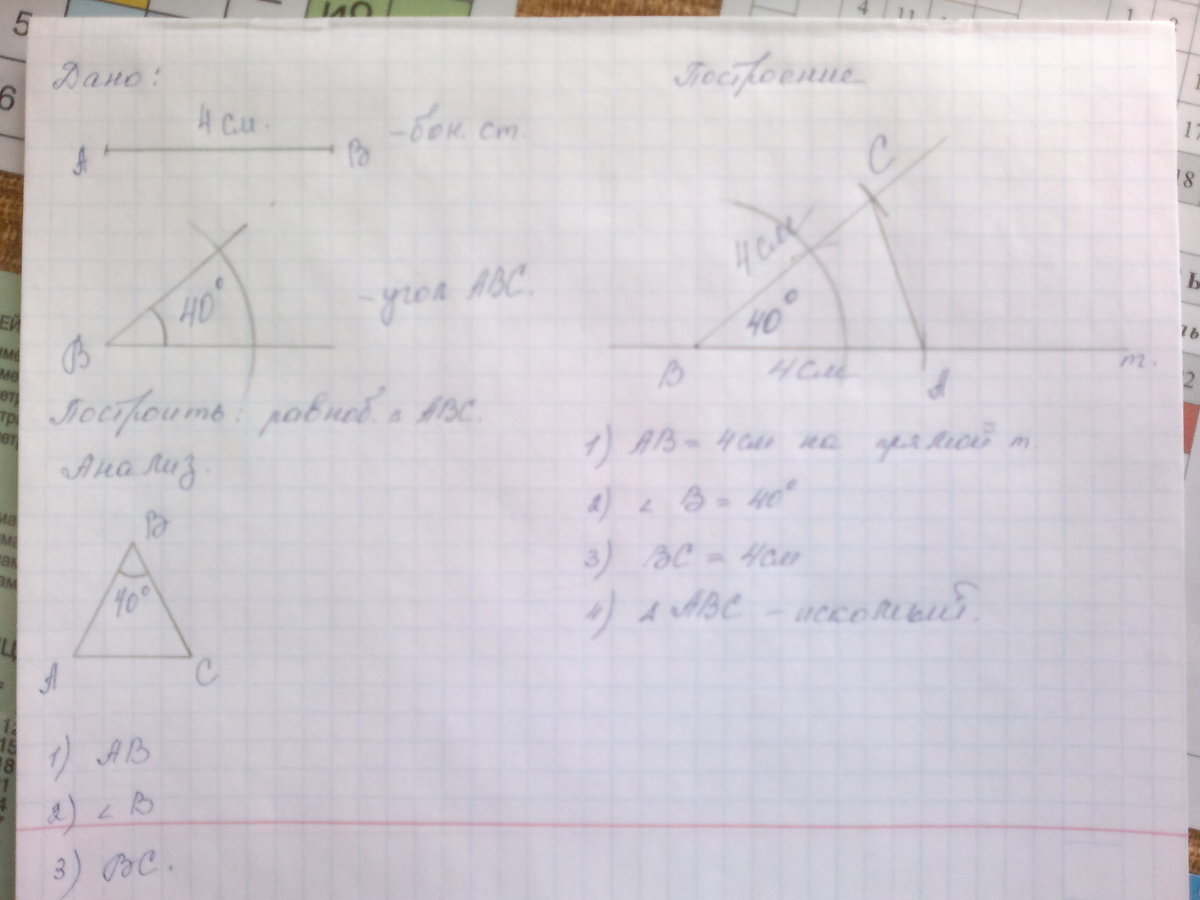 Дано:
4 см.
A B – бок. ст.
40°
B
– угол ABC.
Построить: равноб. ▵ ABC.
Анализ.
B
40°
A C
1) AB
2) ∠ B
3) BC.
Построение
C
4 см
40°
B 4 см A m.
1) AB = 4 см на прямой m.
2) ∠ B = 40°
3) BC = 4 см
4) ▵ ABC – искомый.
5
6
ИО
4 11
1
17
18
2